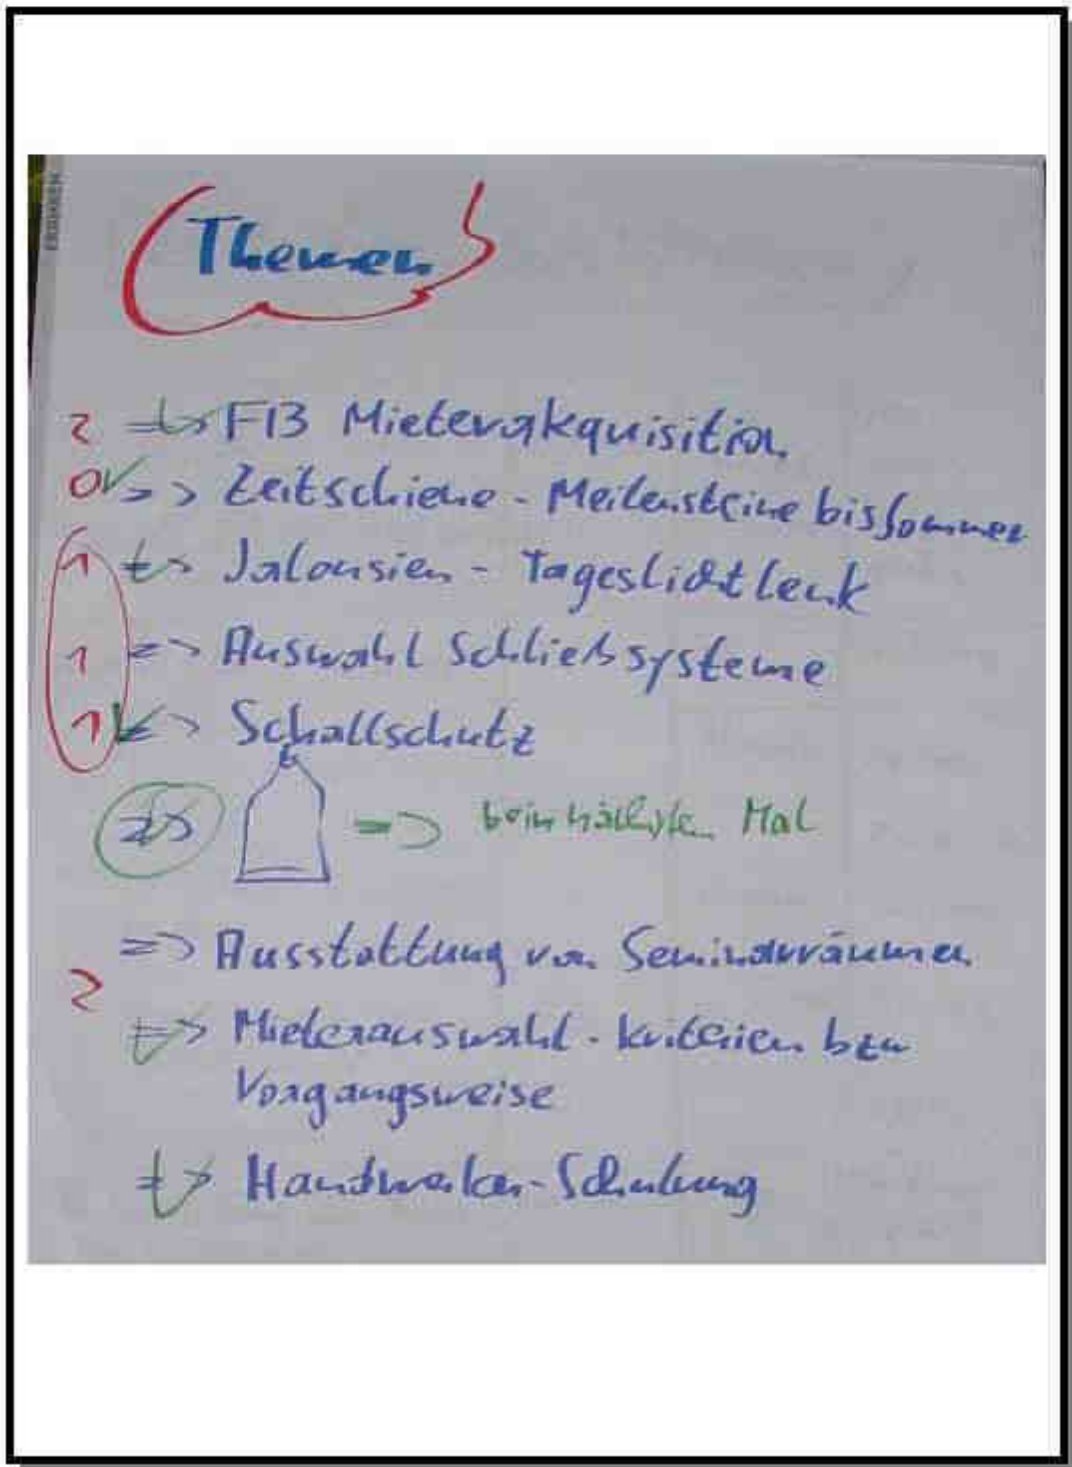 Themen
2 => F13 Mieterakquisition
0 => Zeitschiene - Meilensteine bis Sommer
1 => Jalousien - Tageslichtlenk
1 => Auswahl Schließsysteme
1 => Schallschutz
=> => beim nächsten Mal
=> Ausstattung von Seminarräumen
2
=> Mieterauswahl - kriterien bzw
Vorgangsweise
=> Handwerker-Schulung